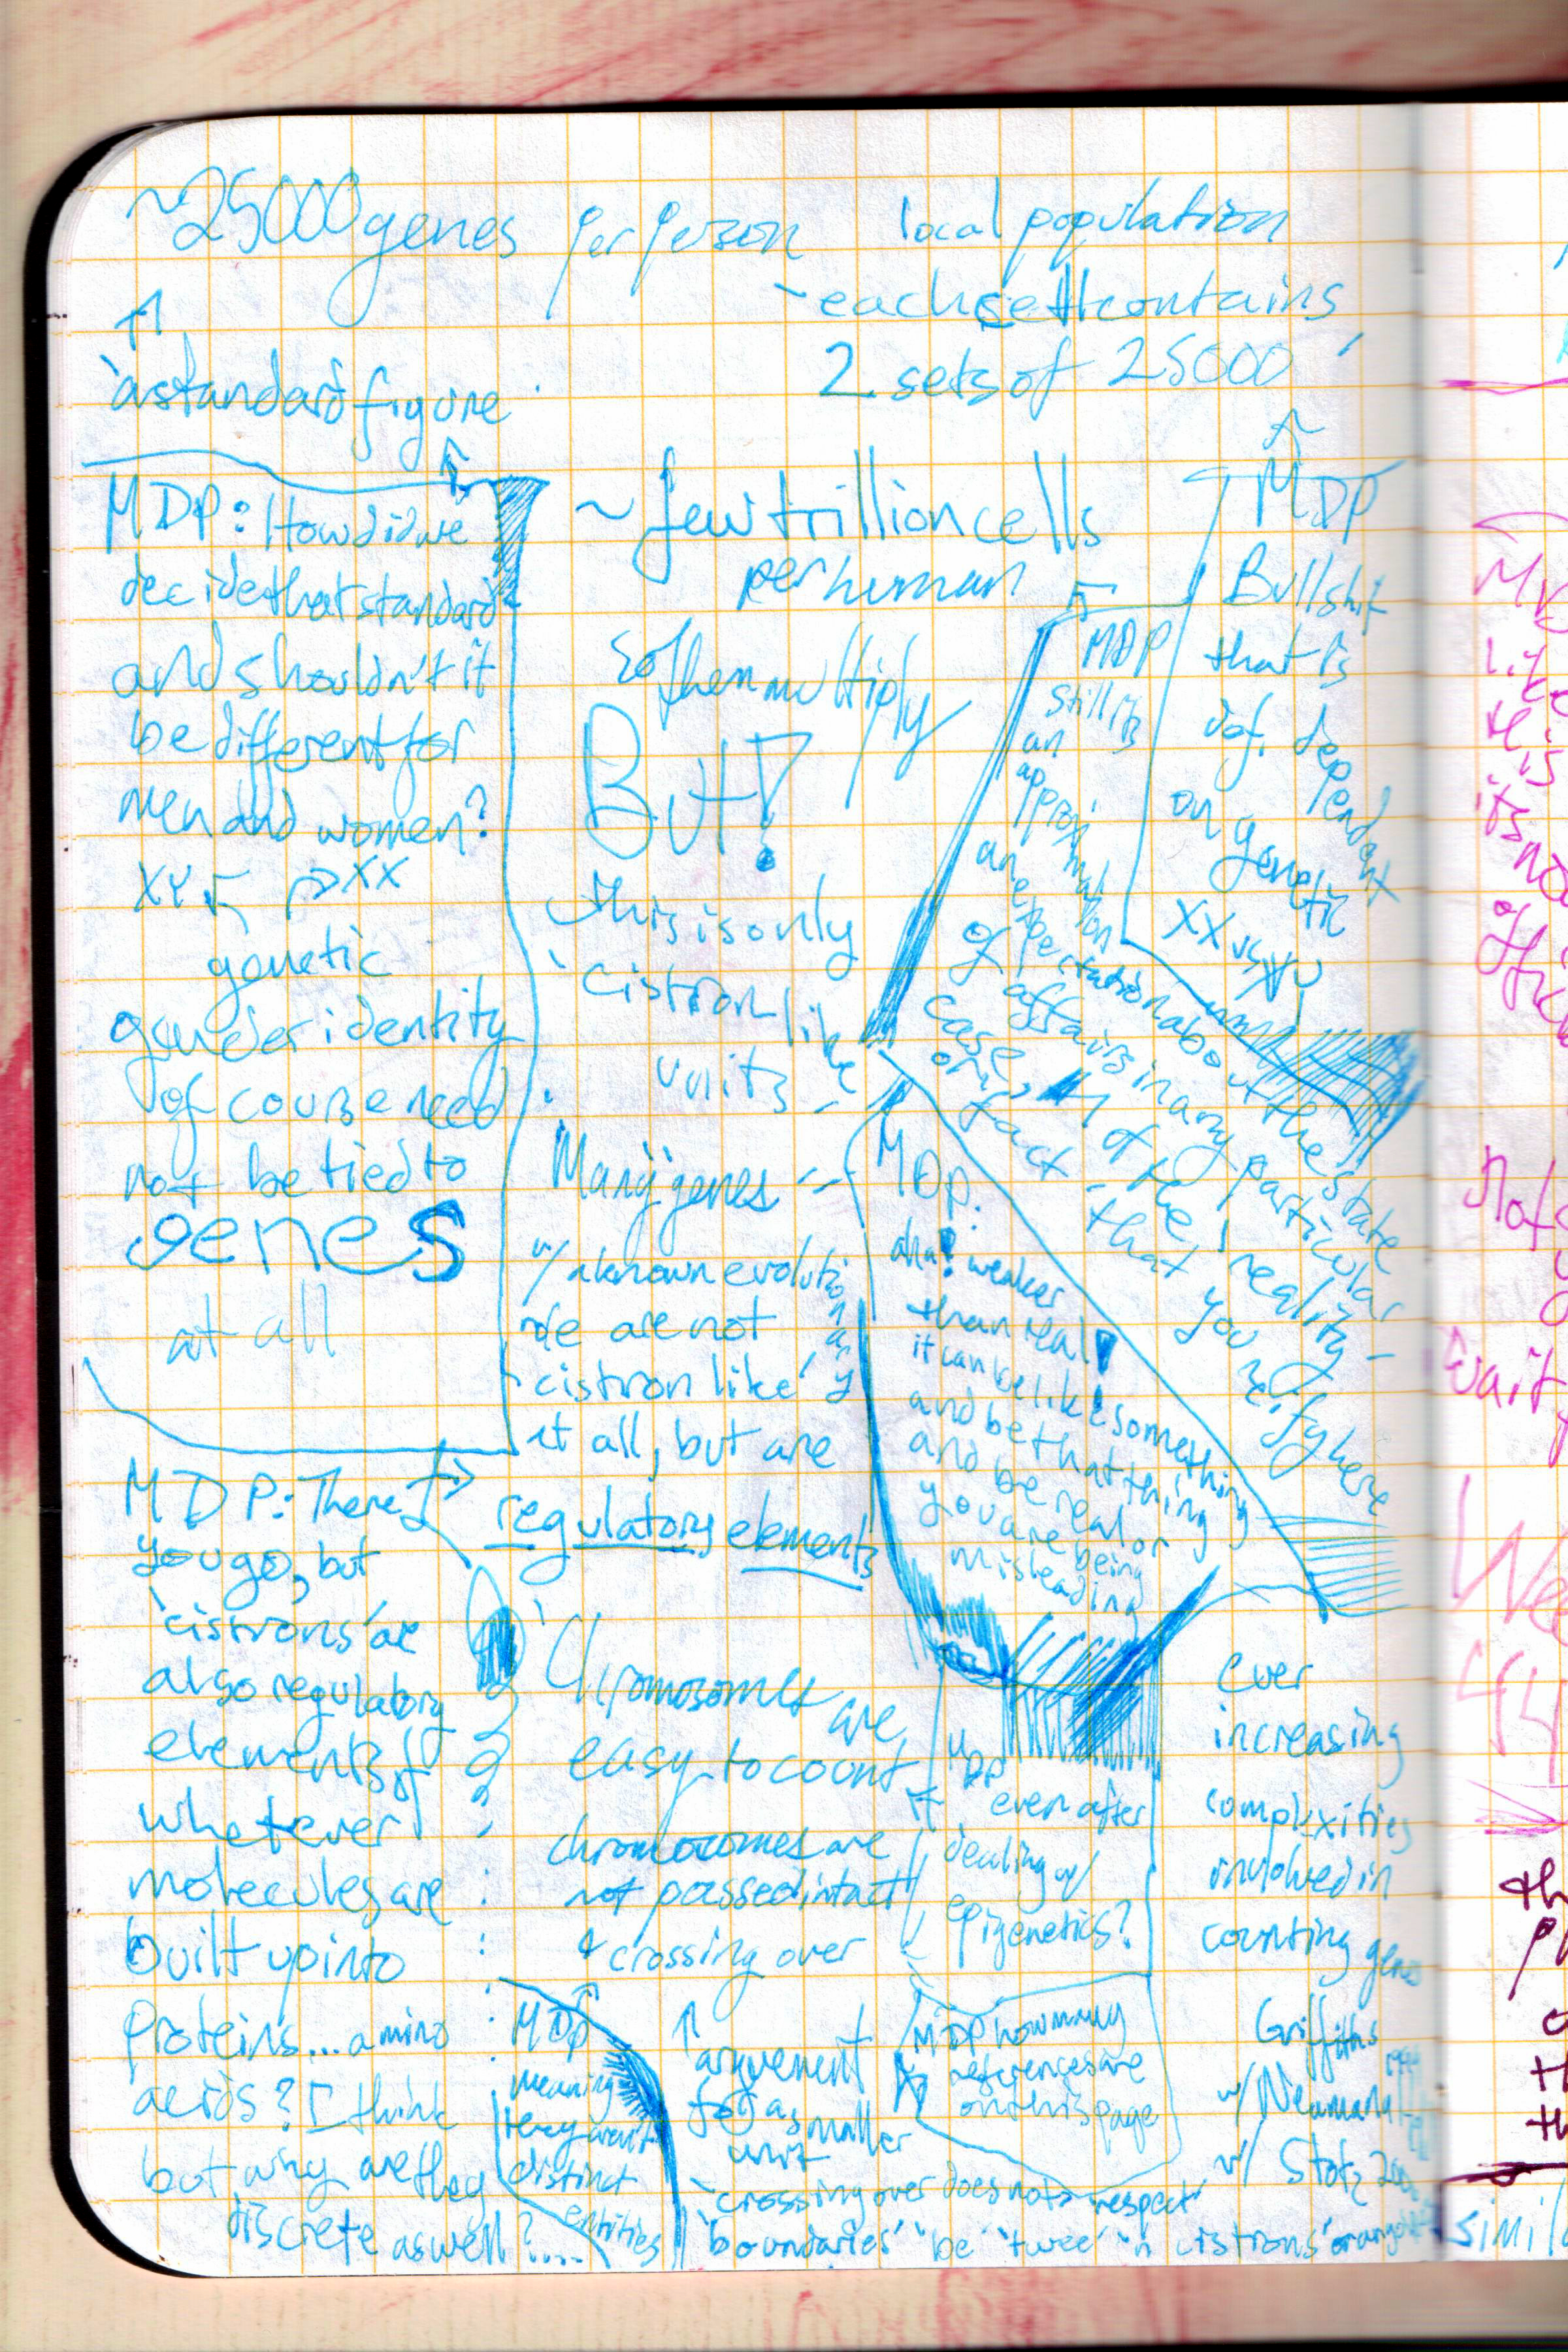 ~25000 genes per person
↑
'a standard' figure
local population
- each cell contains
2 sets of 25000
MDP: How did we
decide that standard
and shouldn't it
be different for
men and women?
XY ↰ ↱ XX
genetic
gender identity
of course need
not be tied to
genes
at all
~ few trillion cells
per human
So then multiply
But!
this is only
'cistron like
units -
Many genes --
w/ a known evolutionary
role are not
'cistron like'
at all, but are
regulatory elements
MDP
Bullshit
that is
def. dependent
on genetic
XX vs XY
MDP
still its
an
approximation
an expectation about the state
of affairs in any particular
case, of the 'reality -
or 'fact - that you reify here
MDP:
aha! weaker
than real!
it can be like something
and be that thing
and be real or
you are being
misleading
MDP: There
you go, but
'cistrons' are
also regulatory
elements of
whatever
molecules are
built up into
proteins... amino
acids? I think
but why are they
discrete as well?....
Chromosomes are
easy to count
chromosomes are
not passed intact
& crossing over
MDP
meaning
they aren't
distinct
entities
↑
arguement
for a smaller
unit
- crossing over does not respect
'boundaries' 'be 'twee' 'n cistrons'
MDP
even after
dealing w/
epigenetics?
MDP how many
references are
on this page
Ever
increasing
complexities
involved in
counting genes
Griffiths
w/ Neumann
w/ Stotz